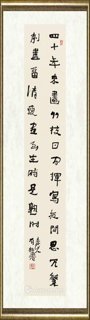 四十年来畫竹枝日間揮寫夜間思冗繁
削盡留清瘦畫到生時是熟時